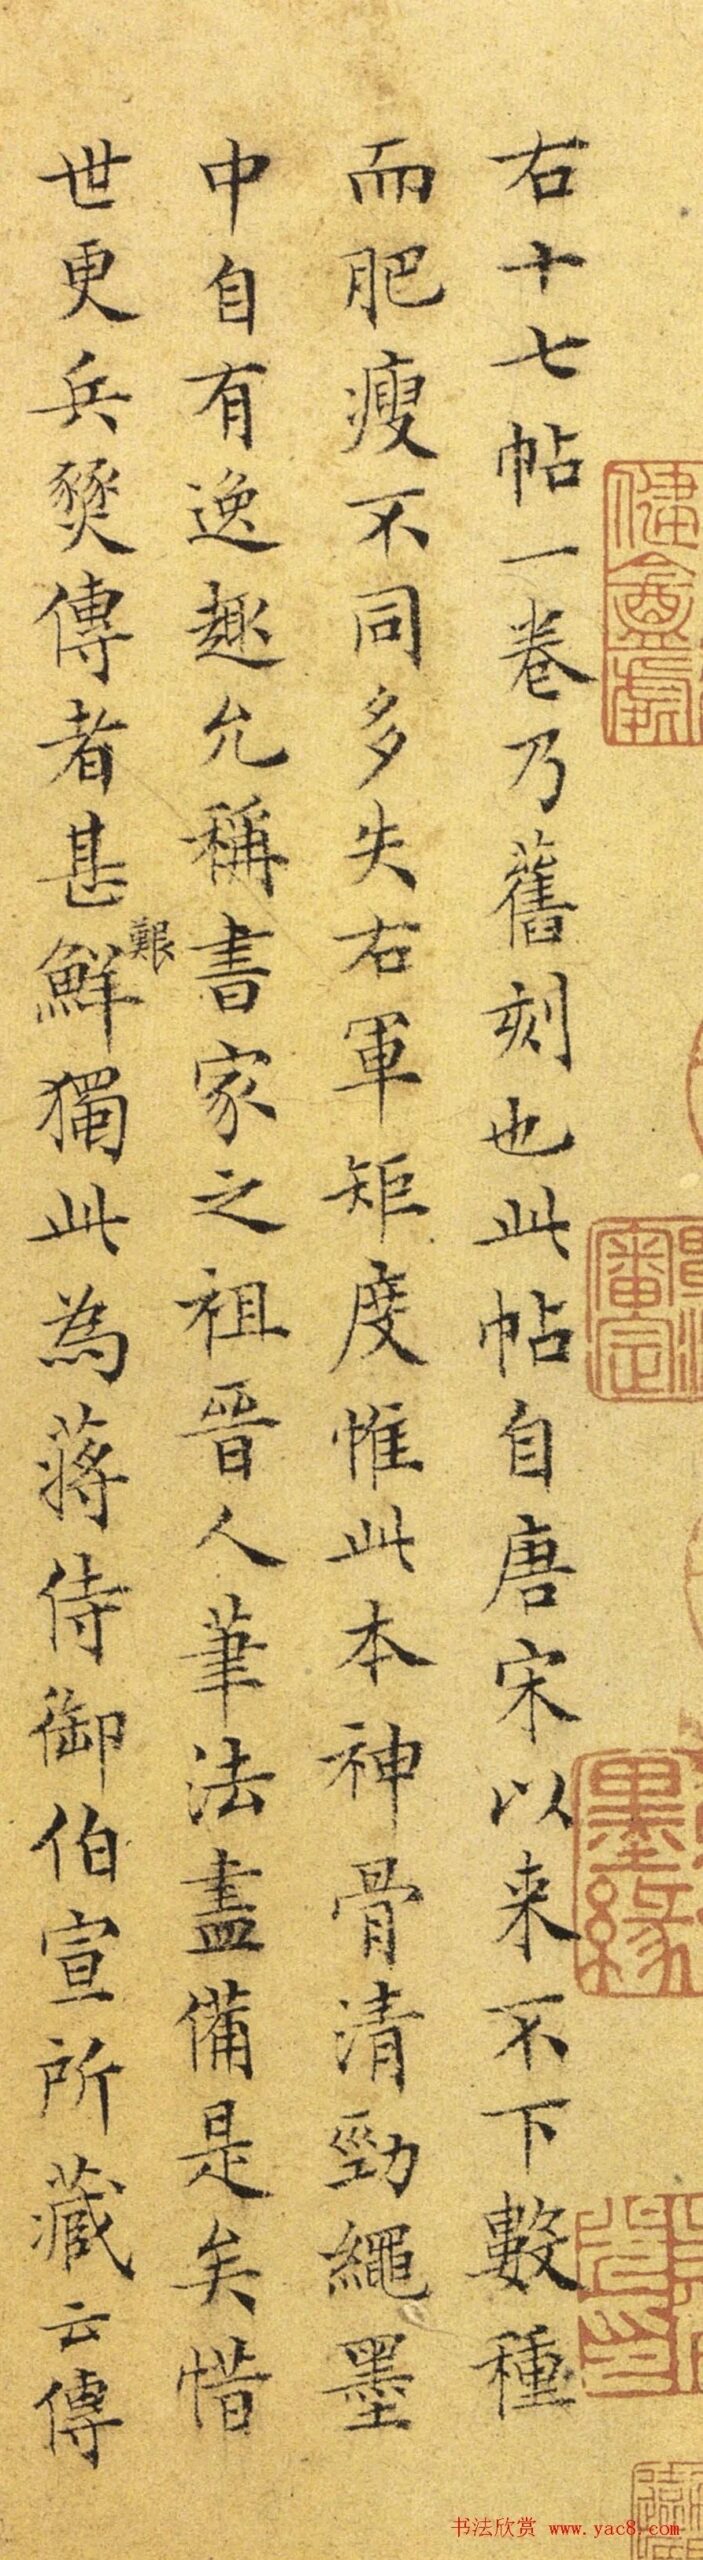 右十七帖一卷乃舊刻也此帖自唐宋以来不下數種
而肥瘦不同多失右軍矩度惟此本神骨清勁繩墨
中自有逸趣允稱書家之祖晉人筆法盡備是矣惜
艱
世更兵燹傳者甚鮮獨此為蔣侍御伯宣所藏云傳
審定
墨緣
书法欣赏 www.yac8.com